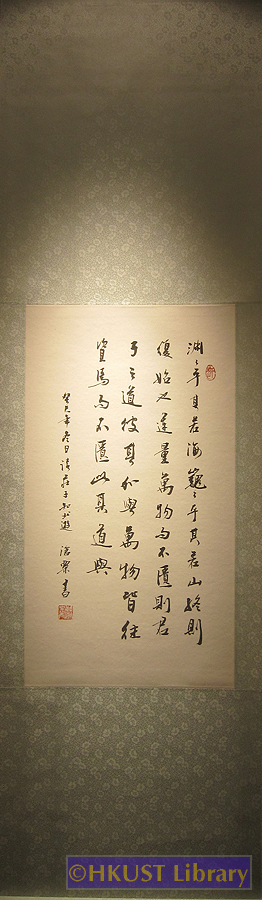 渊〻乎其若海巍〻乎其若山終則
復始也運量萬物而不匱則君
子之道彼其外與萬物皆往
資焉而不匱此其道與
癸巳年冬日讀莊子知北遊 書
©HKUST Library